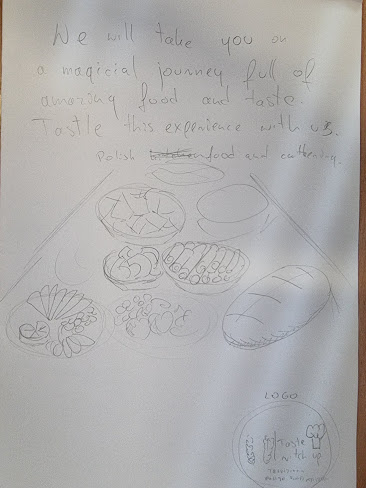 We will take you on
a magicial journey full of
amazing food and taste.
Tastle this experience with us.
Polish food and cathering.
LOGO
Taste